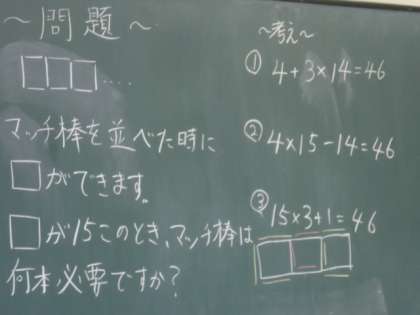 ～問題～
□□□‥‥
マッチ棒を並べた時に
□ができます。
□が15このとき、マッチ棒は
何本必要ですか？
～考え～
① 4+3×14=46
② 4×15-14=46
③ 15×3+1=46